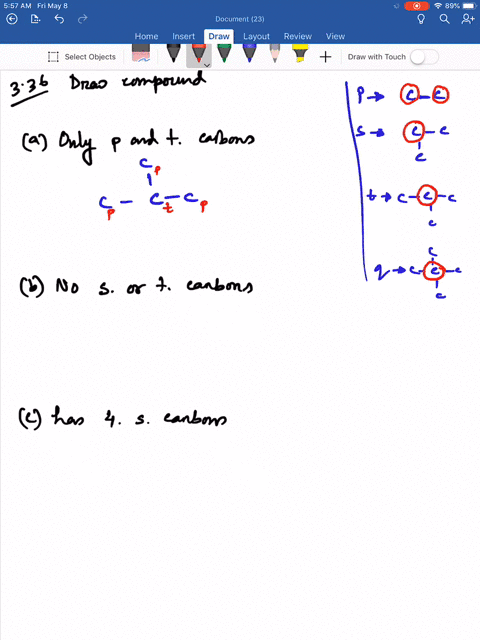 5:57 AM Fri May 8
89%
Document (23)
Home Insert Draw Layout Review View
Select Objects
Draw with Touch
3.36 Draw compound
(a) Only p and t. carbons
C p
C p – C t – C p
(b) No s. or t. carbons
(c) has 4. s. carbons
p → C – C
s → C – C
C
t → C – C – C
C
C
q → C – C – C
C